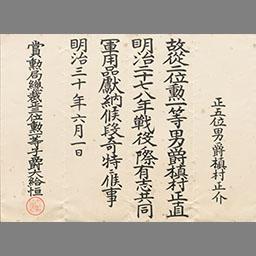 故從二位勲一等男爵槇村正直
明治二十七八年戦役ノ際有志共同
軍用品獻納候段奇特ニ候事
明治三十年六月一日
賞勲局總裁正二位勲一等子爵大給恒
正五位男爵槇村正介